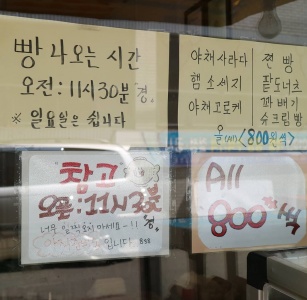 빵 나오는 시간
오전 : 11시30분 경.
※ 일요일은 쉽니다
야채사라다
햄 소세지
야채고로케
찐빵
팥도너츠
꽈배기
슈크림빵
올(All) <800원 씩>
참고
오픈 : 11시 30분 경
너무 일찍 오지 마세요~!!
입니다
All
"800"원 씩